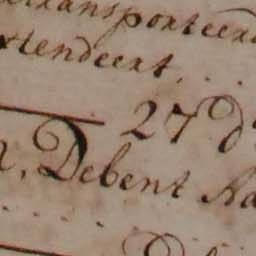 transporteer
tendeert
27 d
, Debent Aa